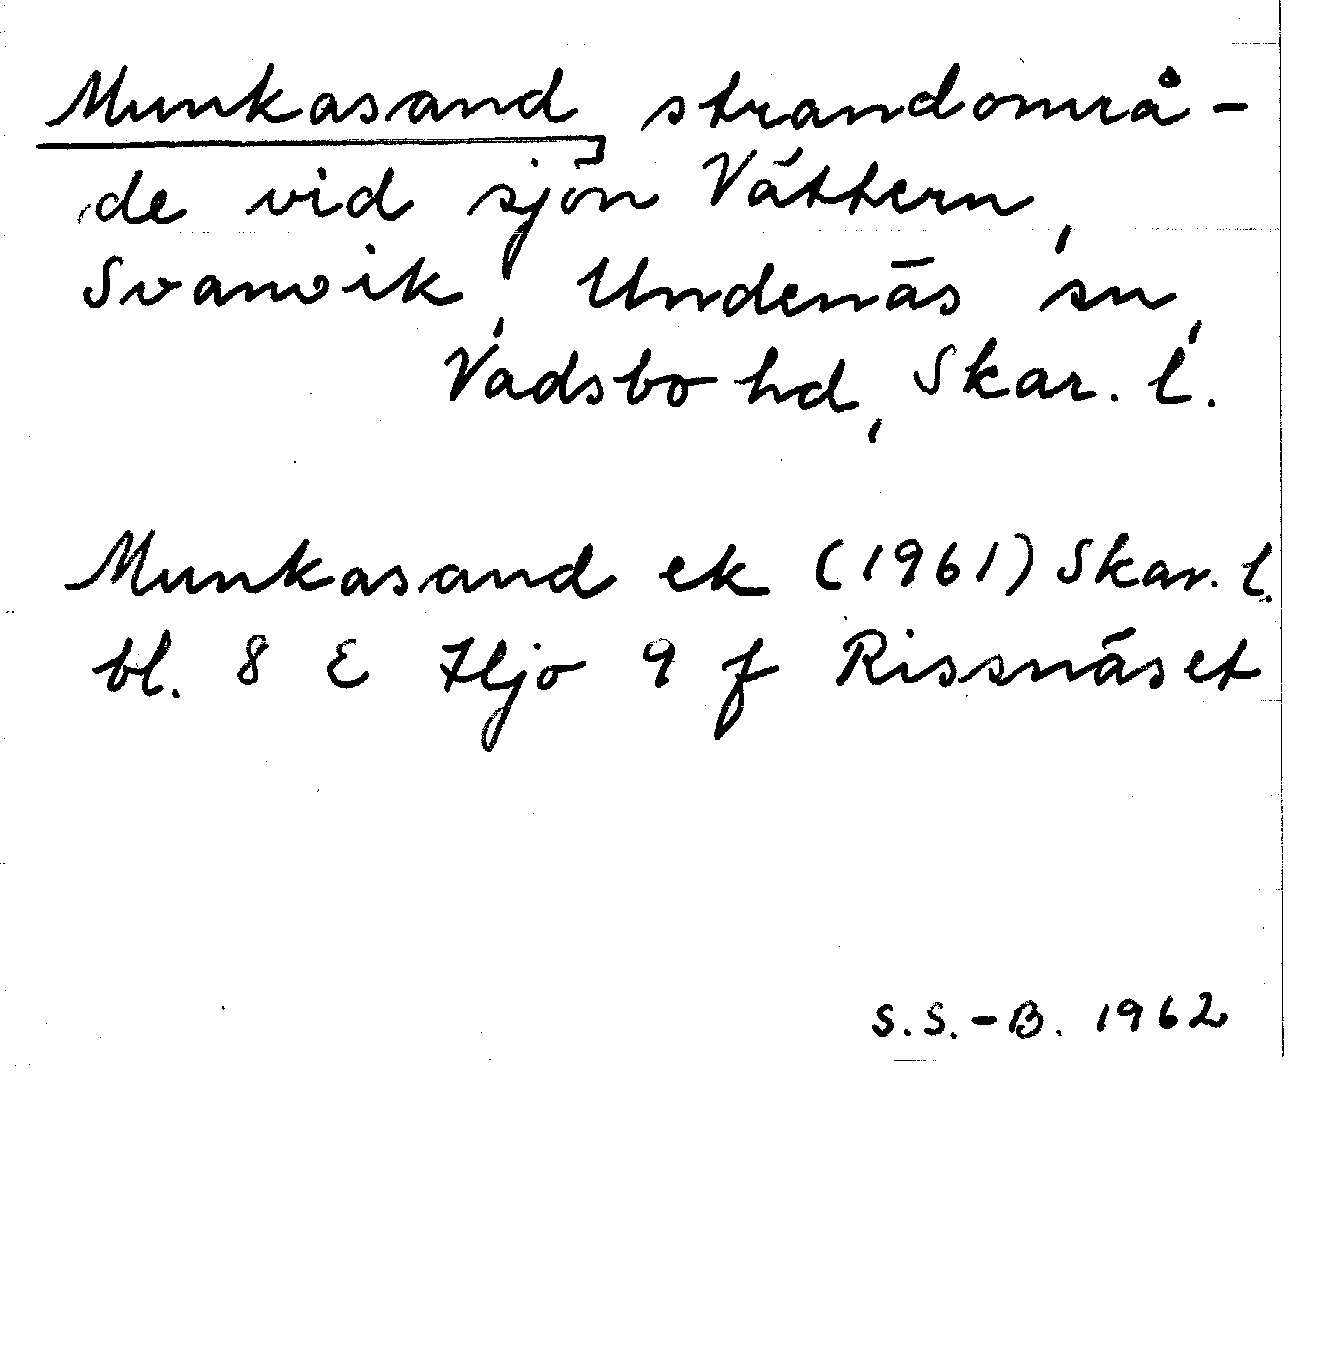 Munkasand strandområ-
de vid sjön Vättern,
Svanvik, Undenäs sn,
Vadsbo hd, Skar. l.
Munkasand ek (1961) Skar. l.
bl. 8 E Hjo 9 f Rissnäset
S.S.-B. 1962